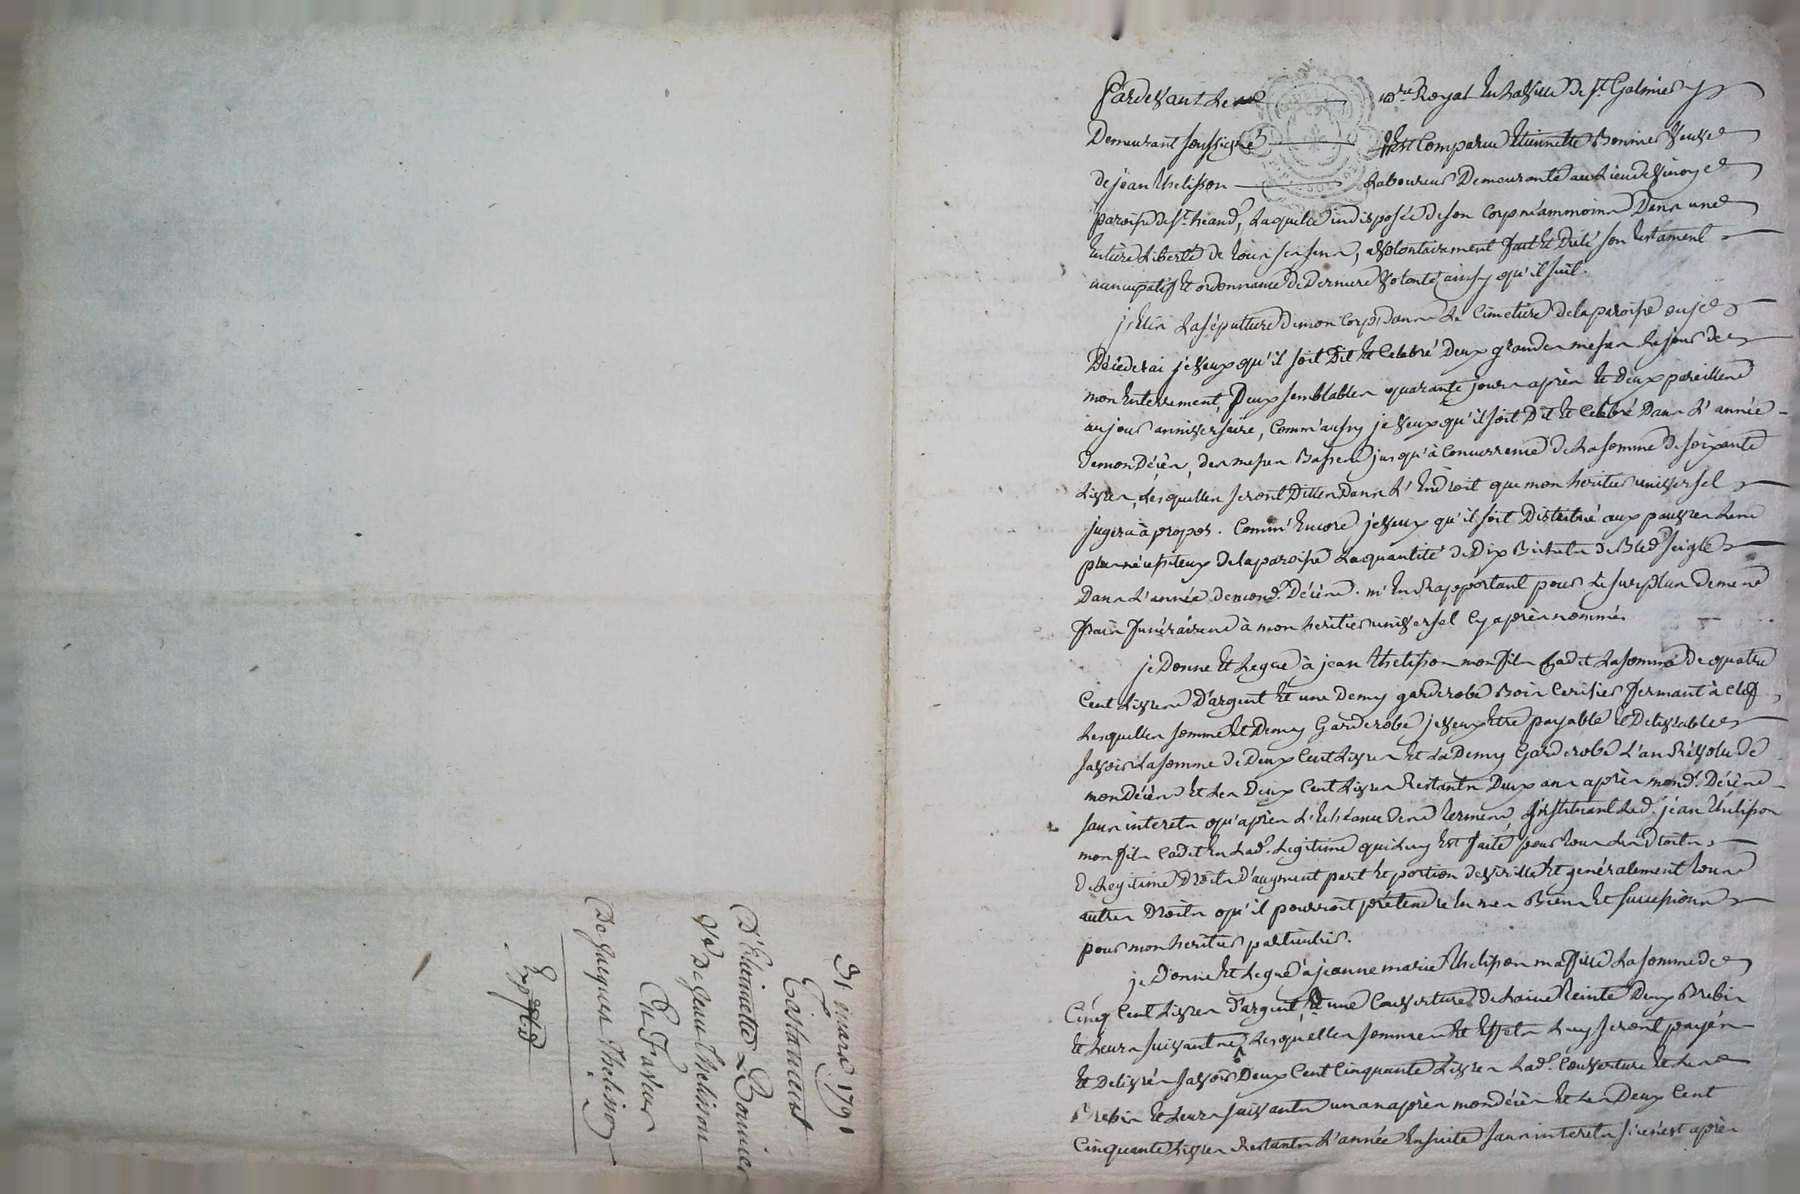 Pardevant le nore Royal en la ville de St Galmier
Demeurant soussigné est Comparue Etiennette Bonnier veuve
de jean thelisson Laboureur Demeurante au Lieu de
paroisse de St heand, Laquelle indisposée de son Corp néammoins Dans une
Entière Liberté de tous ses sens, a volontairement fait Et Dicté son testament
nuncupatif Et ordonnance de Derniere volonté ainsy qu'il suit.
j'élis La sépulture de mon Corps dans Le Cimetière de la paroisse ou je
Décèderai je veux qu'il soit Dit Et Celebré Deux grandes messes Le jour de
mon Enterrement, Deux semblables quarante jours après Et Deux pareilles
au jour anniversaire, Comm'aussy je veux qu'il soit Dit Et Celebré Dans L'année
de mon Décès, des messes Basses jusqu'à Concurrence de La somme de soixante
Livres, Lesquelles seront Dittes Dans L'Endroit que mon heritier universel
jugera à propos. Comm'Encore je veux qu'il soit Distribué aux pauvres Les
plus nécessiteux de la paroisse La quantité de Dix Bichets de Bled seigle
Dans L'année de mond. Décès. m'En Rapportant pour Le surplus de mes
frais funéraires à mon heritier universel Cy après nommé.
je Donne Et Legue à jean thelisson mon fils Cadet La somme de quatre
Cent Livres D'argent Et une Demy garderobe Bois Cerisier fermant à Clef,
Lesquelles somme Et Demy Garderobe je veux Etre payable Et Delivrable
savoir La somme de Deux Cent Livres Et La Demy Garderobe L'an Révolu de
mon Décès Et Les Deux Cent Livres Restants Deux ans après mond. Décès
sans interets qu'après L'Echéance des termes, instituant Led. jean thelisson
mon fils Cadet En Lad. Legitime qui Luy Est faite pour tous Les Droits
de Legitime Droits D'augment part Et portion de virille Et généralement tous
autres Droits qu'il pourroit prétendre En mes Biens Et successions
pour mon heritier particulier.
je Donne Et Legue à jeanne marie thelisson ma fille La somme de
Cinq Cent Livres D'argent, Et une Couverture de Laine teinte Deux Brebis
Et Leurs suivants Lesquelles sommes Et Effets Luy seront payés
Et Delivrés savoir Deux Cent Cinquante Livres Lad. Couverture Et Les
Brebis Et Leurs suivants un an après mon décès Et Les Deux Cent
Cinquante Livres Restants L'année Ensuite sans interets si ce n'est après
31 mars 1791
Testament
D'Etiennette Bonnier
Ve De Jean thelisson
En faveur
De Jacques thelisson
Exped